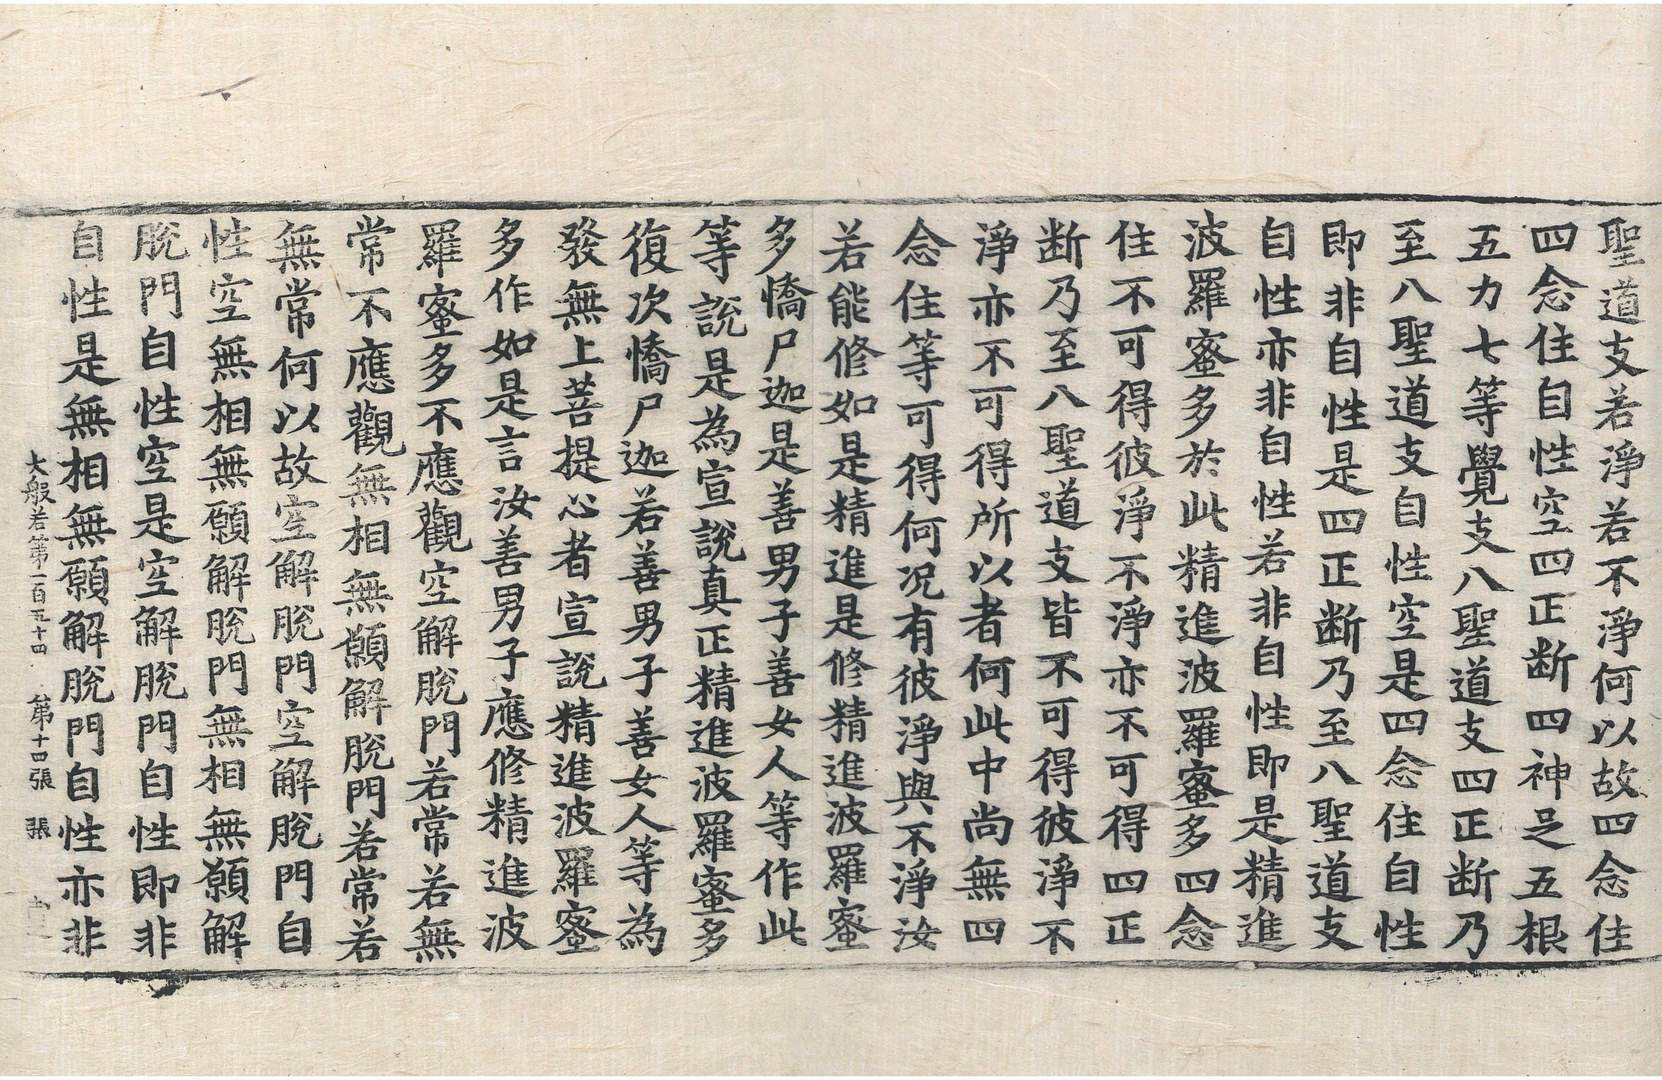 聖道支若淨若不淨何以故四念住
四念住自性空四正断四神足五根
五力七等覺支八聖道支四正断乃
至八聖道支自性空是四念住自性
即非自性是四正断乃至八聖道支
自性亦非自性若非自性即是精進
波羅蜜多於此精進波羅蜜多四念
住不可得彼淨不淨亦不可得四正
断乃至八聖道支皆不可得彼淨不
淨亦不可得所以者何此中尚無四
念住等可得何況有彼淨與不淨汝
若能修如是精進是修精進波羅蜜
多憍尸迦是善男子善女人等作此
等說是為宣說真正精進波羅蜜多
復次憍尸迦若善男子善女人等為
發無上菩提心者宣說精進波羅蜜
多作如是言汝善男子應修精進波
羅蜜多不應觀空解脫門若常若無
常不應觀無相無願解脫門若常若
無常何以故空解脫門空解脫門自
性空無相無願解脫門無相無願解
脫門自性空是空解脫門自性即非
自性是無相無願解脫門自性亦非
大般若第一百五十四 第十四張 張